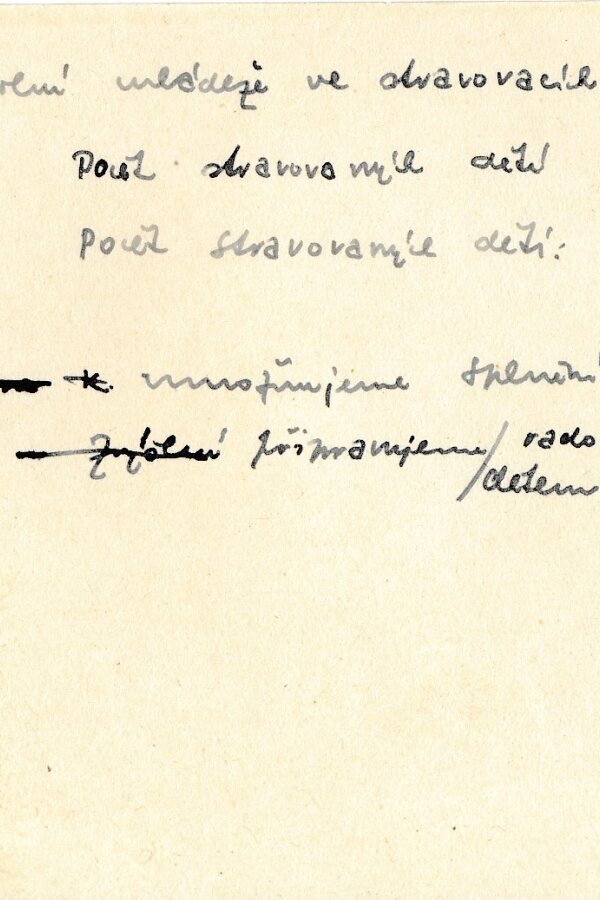 olní mládeže ve stravovacích
Počet stravovaných dětí
Počet stravovaných dětí:
umožňujeme splnění
Zvýšení připravujeme/ rado
/dětem